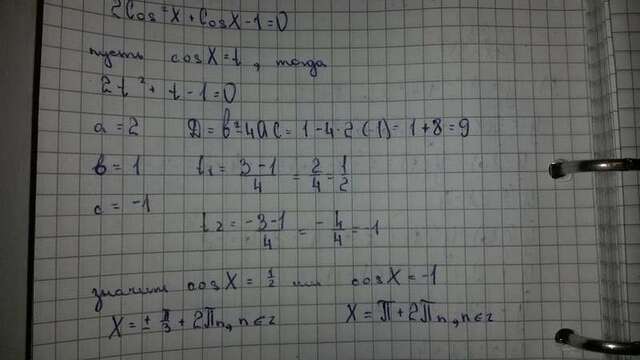 2Cos²X + CosX - 1 = 0
пусть cosX = t, тогда
2t² + t - 1 = 0
a = 2 D = b² - 4ac = 1 - 4·2(-1) = 1 + 8 = 9
b = 1 t₁ = (3 - 1)/4 = 2/4 = 1/2
c = -1
t₂ = (-3 - 1)/4 = -4/4 = -1
значит cosX = 1/2 или cosX = -1
X = ± π/3 + 2πn, n∈z X = π + 2πn, n∈z